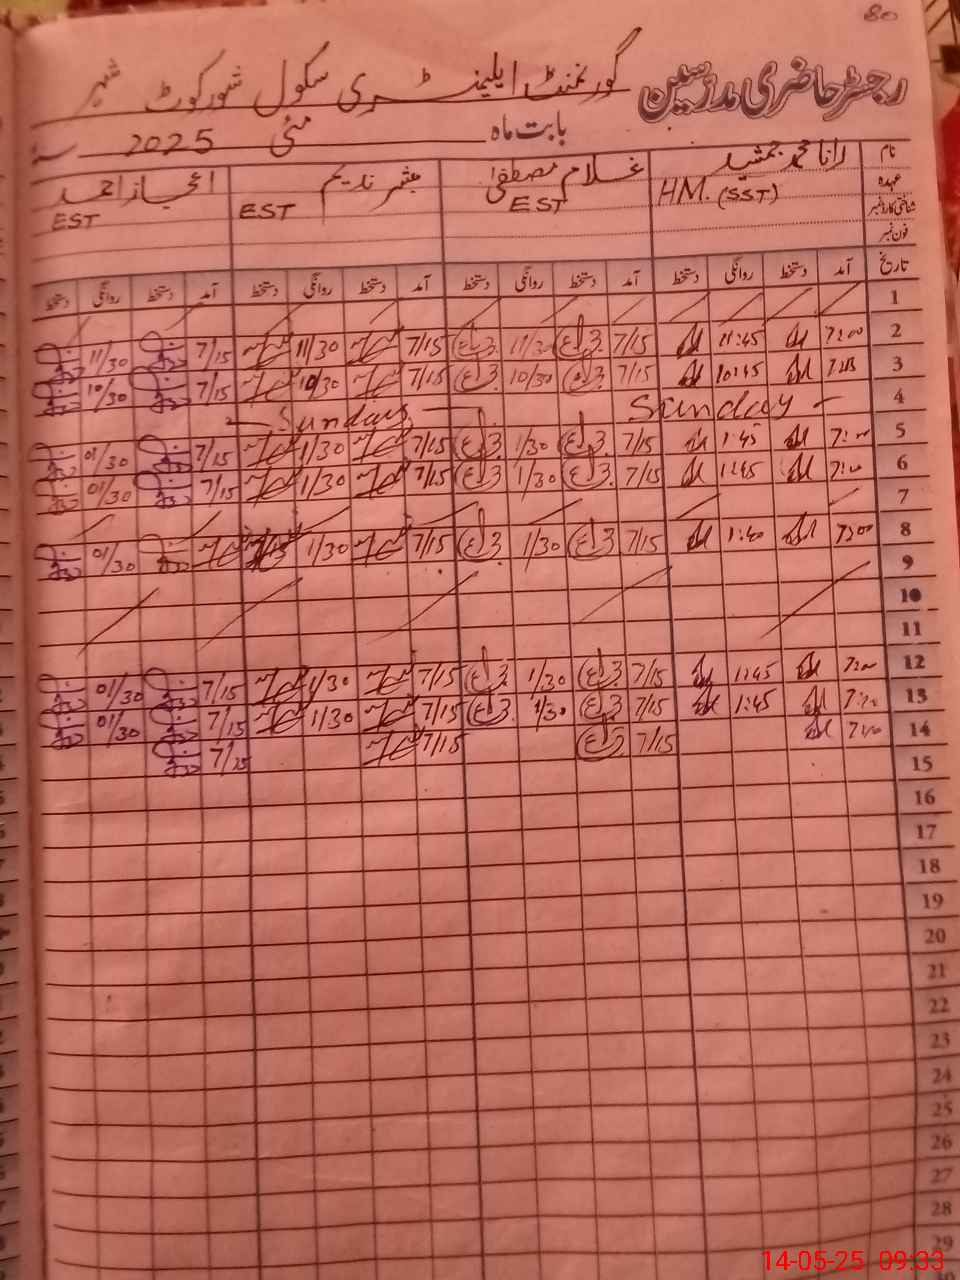 80
رجسٹر حاضری مدرسین گورنمنٹ ایلیمنٹری سکول شورکوٹ شہر
بابت ماہ مئی 2025
نام رانا محمد جمشید غلام مصطفیٰ مبشر ندیم اعجاز احمد
عہدہ HM. (SST) EST EST EST
شناختی کارڈ نمبر
فون نمبر
تاریخ آمد دستخط روانگی دستخط آمد دستخط روانگی دستخط آمد دستخط روانگی دستخط آمد دستخط روانگی دستخط
1
2 7:00 11:45 7/15 11/30 7/15 11/30 7/15 11/30
3 10:45 7/15 10/30 7/15 10/30 7/15 10/30
4 Sunday Sunday
5 7:00 1:45 7/15 1/30 7/15 1/30 7/15 01/30
6 7:00 1:45 7/15 1/30 7/15 1/30 7/15 01/30
7
8 7:00 1:40 7/15 1/30 7/15 1/30 01/30
9
10
11
12 7:00 1:45 7/15 1/30 7/15 1/30 7/15 01/30
13 7:00 1:45 7/15 1/30 7/15 1/30 7/15 01/30
14 7:00 7/15 7/15 7/15
15
16
17
18
19
20
21
22
23
24
25
26
27
28
29
14-05-25 09:33